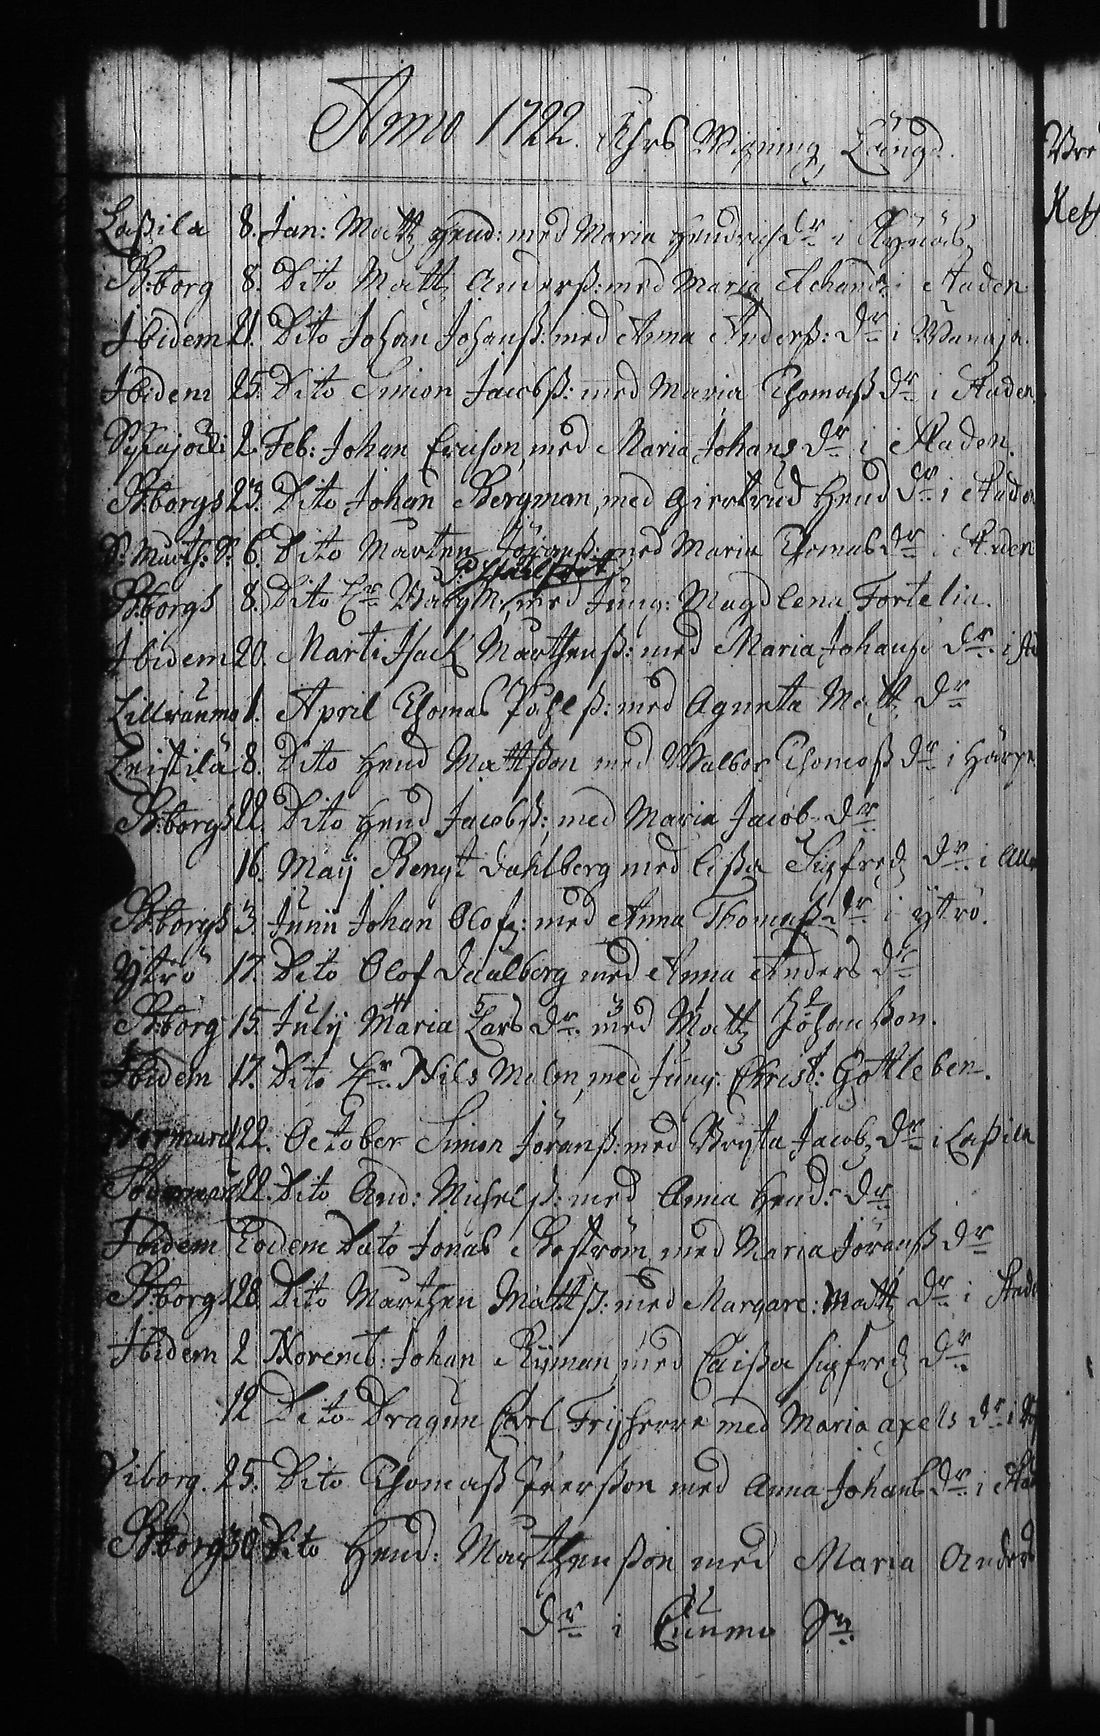 Anno 1722. Åhrs Wigning Längd.
Laßila 8. Jan: Matz Hend: med Maria Hendrichs Dr i
B:borg 8. Dito Matz Anderß: med Maria i Staden
Ibidem 21. Dito Johan Johanß: med Anna Anderß: Dr i Wanaja.
Ibidem 25. Dito Simon Jacobß: med Maria Thomaß Dr i Staden
2. Feb: Johan Ericson med Maria Johans Dr i Staden.
B:borgs 23. Dito Johan Bergman med Giertrud Hend Dr i Staden
St. Marth: S. 6. Dito Marten Jöranß: med Maria Thomas Dr i Staden
B:borgs 8. Dito Hr med Jung: Magdlena Fortelia.
Ibidem 20. Marti Isack Marthenß: med Maria Johans Dr i
Lillraumo 1. April Thomas Påhlß: med Agneta Matz Dr
Leistilä 8. Dito Hend Mattßon med Walbor Thomaß Dr i Harje
B:borgs 22. Dito Hend Jacobß: med Maria Jacob Dr
16. Maij Bengt Dahlberg med Lißa Sigfredz Dr i
B:borgs 3. Junii Johan Olofz: med Anna Thomaß Dr i ytrö.
Ytterö 17. Dito Olof Daalberg med Anna Anders Dr
2 4 5 3 1 2
B:borg 15. July Maria Lars Dr. med Matz Johanßon.
Ibidem 17. Dito Hr. Nils Malm med Jung: Christ: Gottleben.
Normark 22. October Simon Jöranß: med Brijta Jacobz Dr i Laßila
Södermark 22. Dito And: Michelß: med Anna Hend: Dr
Ibidem Eodem Dato Jonas Boström med Maria Jöranß Dr
B:borgs 28. Dito Marthen Mattß: med Margare: Matz Dr i Stad
Ibidem 2 Novemb: Johan Ryman med Caißa Sigfredz Dr
12 Dito Dragun Carl Frijherre med Maria axels Dr i
Viborg. 25. Dito Thomaß Iverßon med Anna Johans Dr i Stad
B:borgs 30 Dito Hend: Marthenßon med Maria Anders
Dr i Cuumo Sn